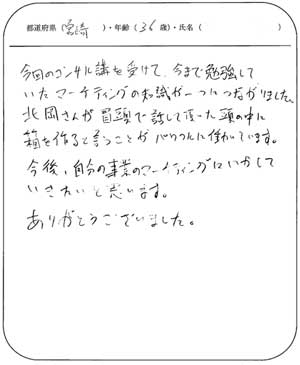 都道府県（宮崎　　）・年齢（36歳）・氏名（　　　　　）
今回のコンサル講を受けて、今まで勉強して
いたマーケティングの知識が一つにつながりました。
北岡さんが冒頭で話して頂いた頭の中に
箱を作ると言うことがパワフルに働いています。
今後、自分の事業のマーケティングにいかして
いきたいと思います。
ありがとうございました。